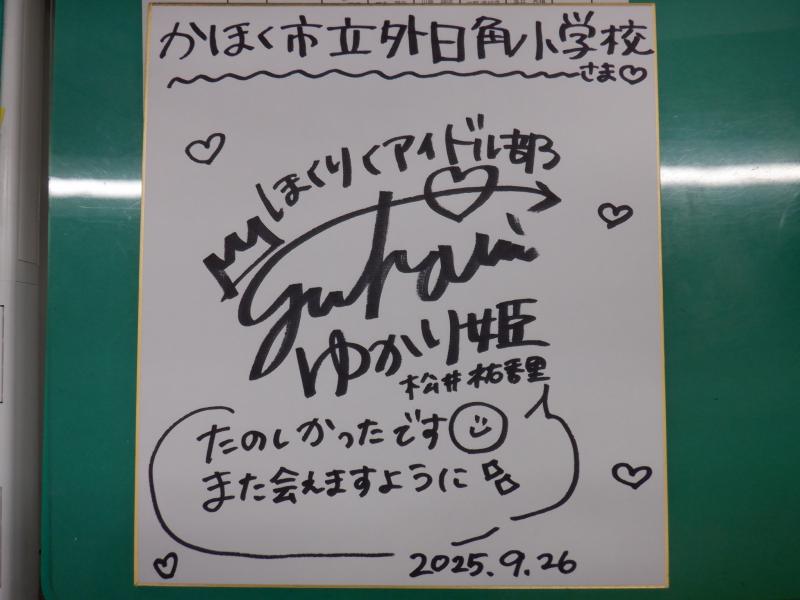 かほく市立外日角小学校
さま♡
ほくりくアイドル部
yukari
ゆかり姫
松井祐香里
たのしかったです
また会えますように
2025.9.26